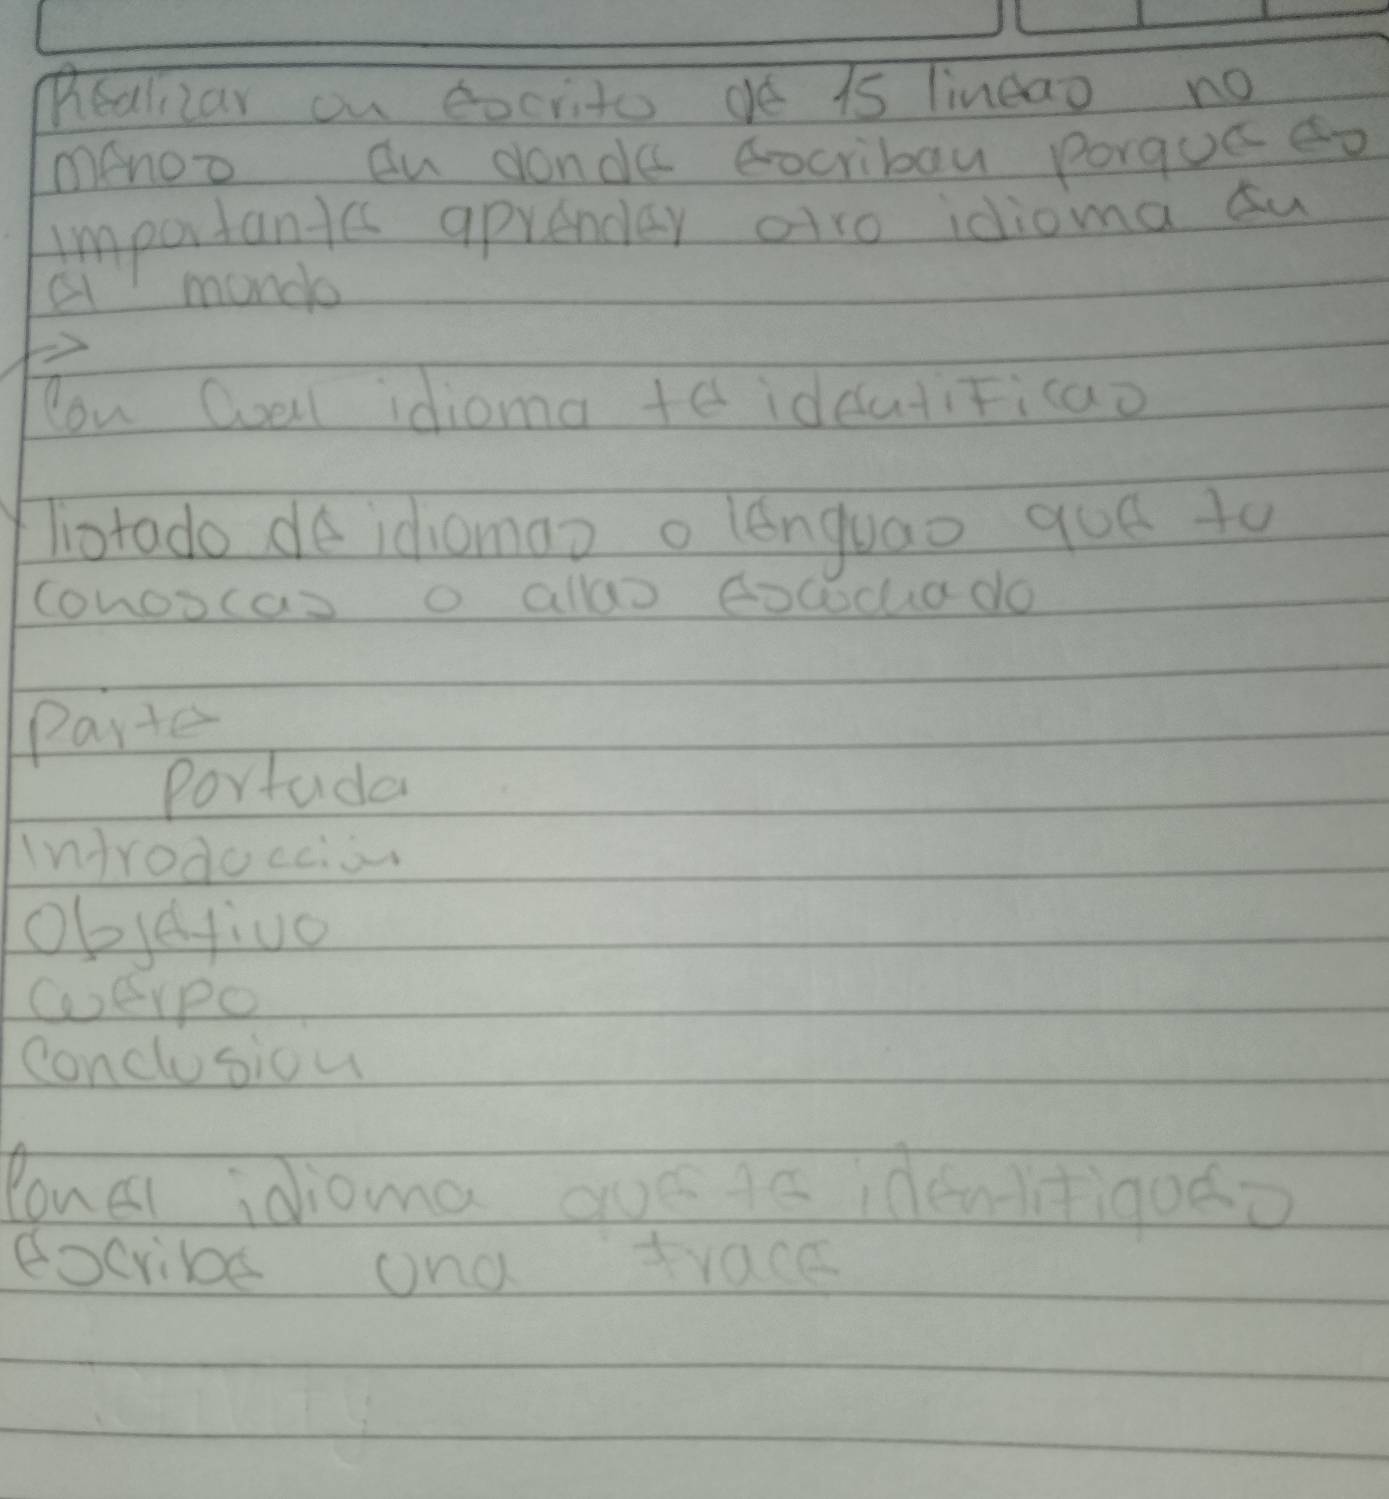 Realizar un escrito de 15 lineas no
menos en donde escriban porque es
importante aprender otro idioma en
el mundo
=>
Con cual idioma te identificas
listado de idiomas o lenguas que tu
conoscas o allas escuchado
Parte
Portada
Introduccion
Objetivo
Cuerpo
Conclusion
Con el idioma que te identifiques
escribe una frace